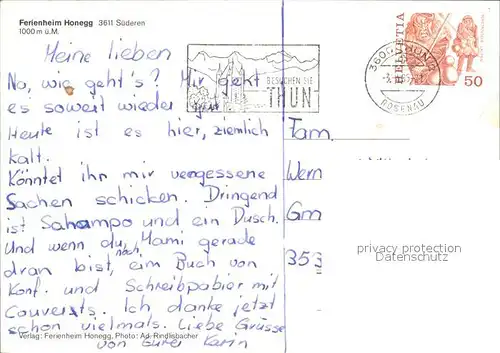 Ferienheim Honegg 3611 Süderen
1000 m ü.M.
Meine lieben
Na, wie geht's? Mir geht
es soweit wieder gut
Heute ist es hier, ziemlich
kalt.
Könntet ihr mir vergessene
Sachen schicken. Dringend
ist Sahampo und ein Dusch.
Und wenn du, Mami gerade
dran bist, noch, ein Buch von
Konf. und Schreibpabier mit
Couverts. Ich danke jetzt
schon vielmals. Liebe Grüsse
von Eurer Karin
Verlag: Ferienheim Honegg, Photo: Ad. Ringisbacher
BESUCHEN SIE
THUN
3600 THUN
ROSENAU
HELVETIA
50
Fam.
Wern
Gm
353
privacy protection
Datenschutz